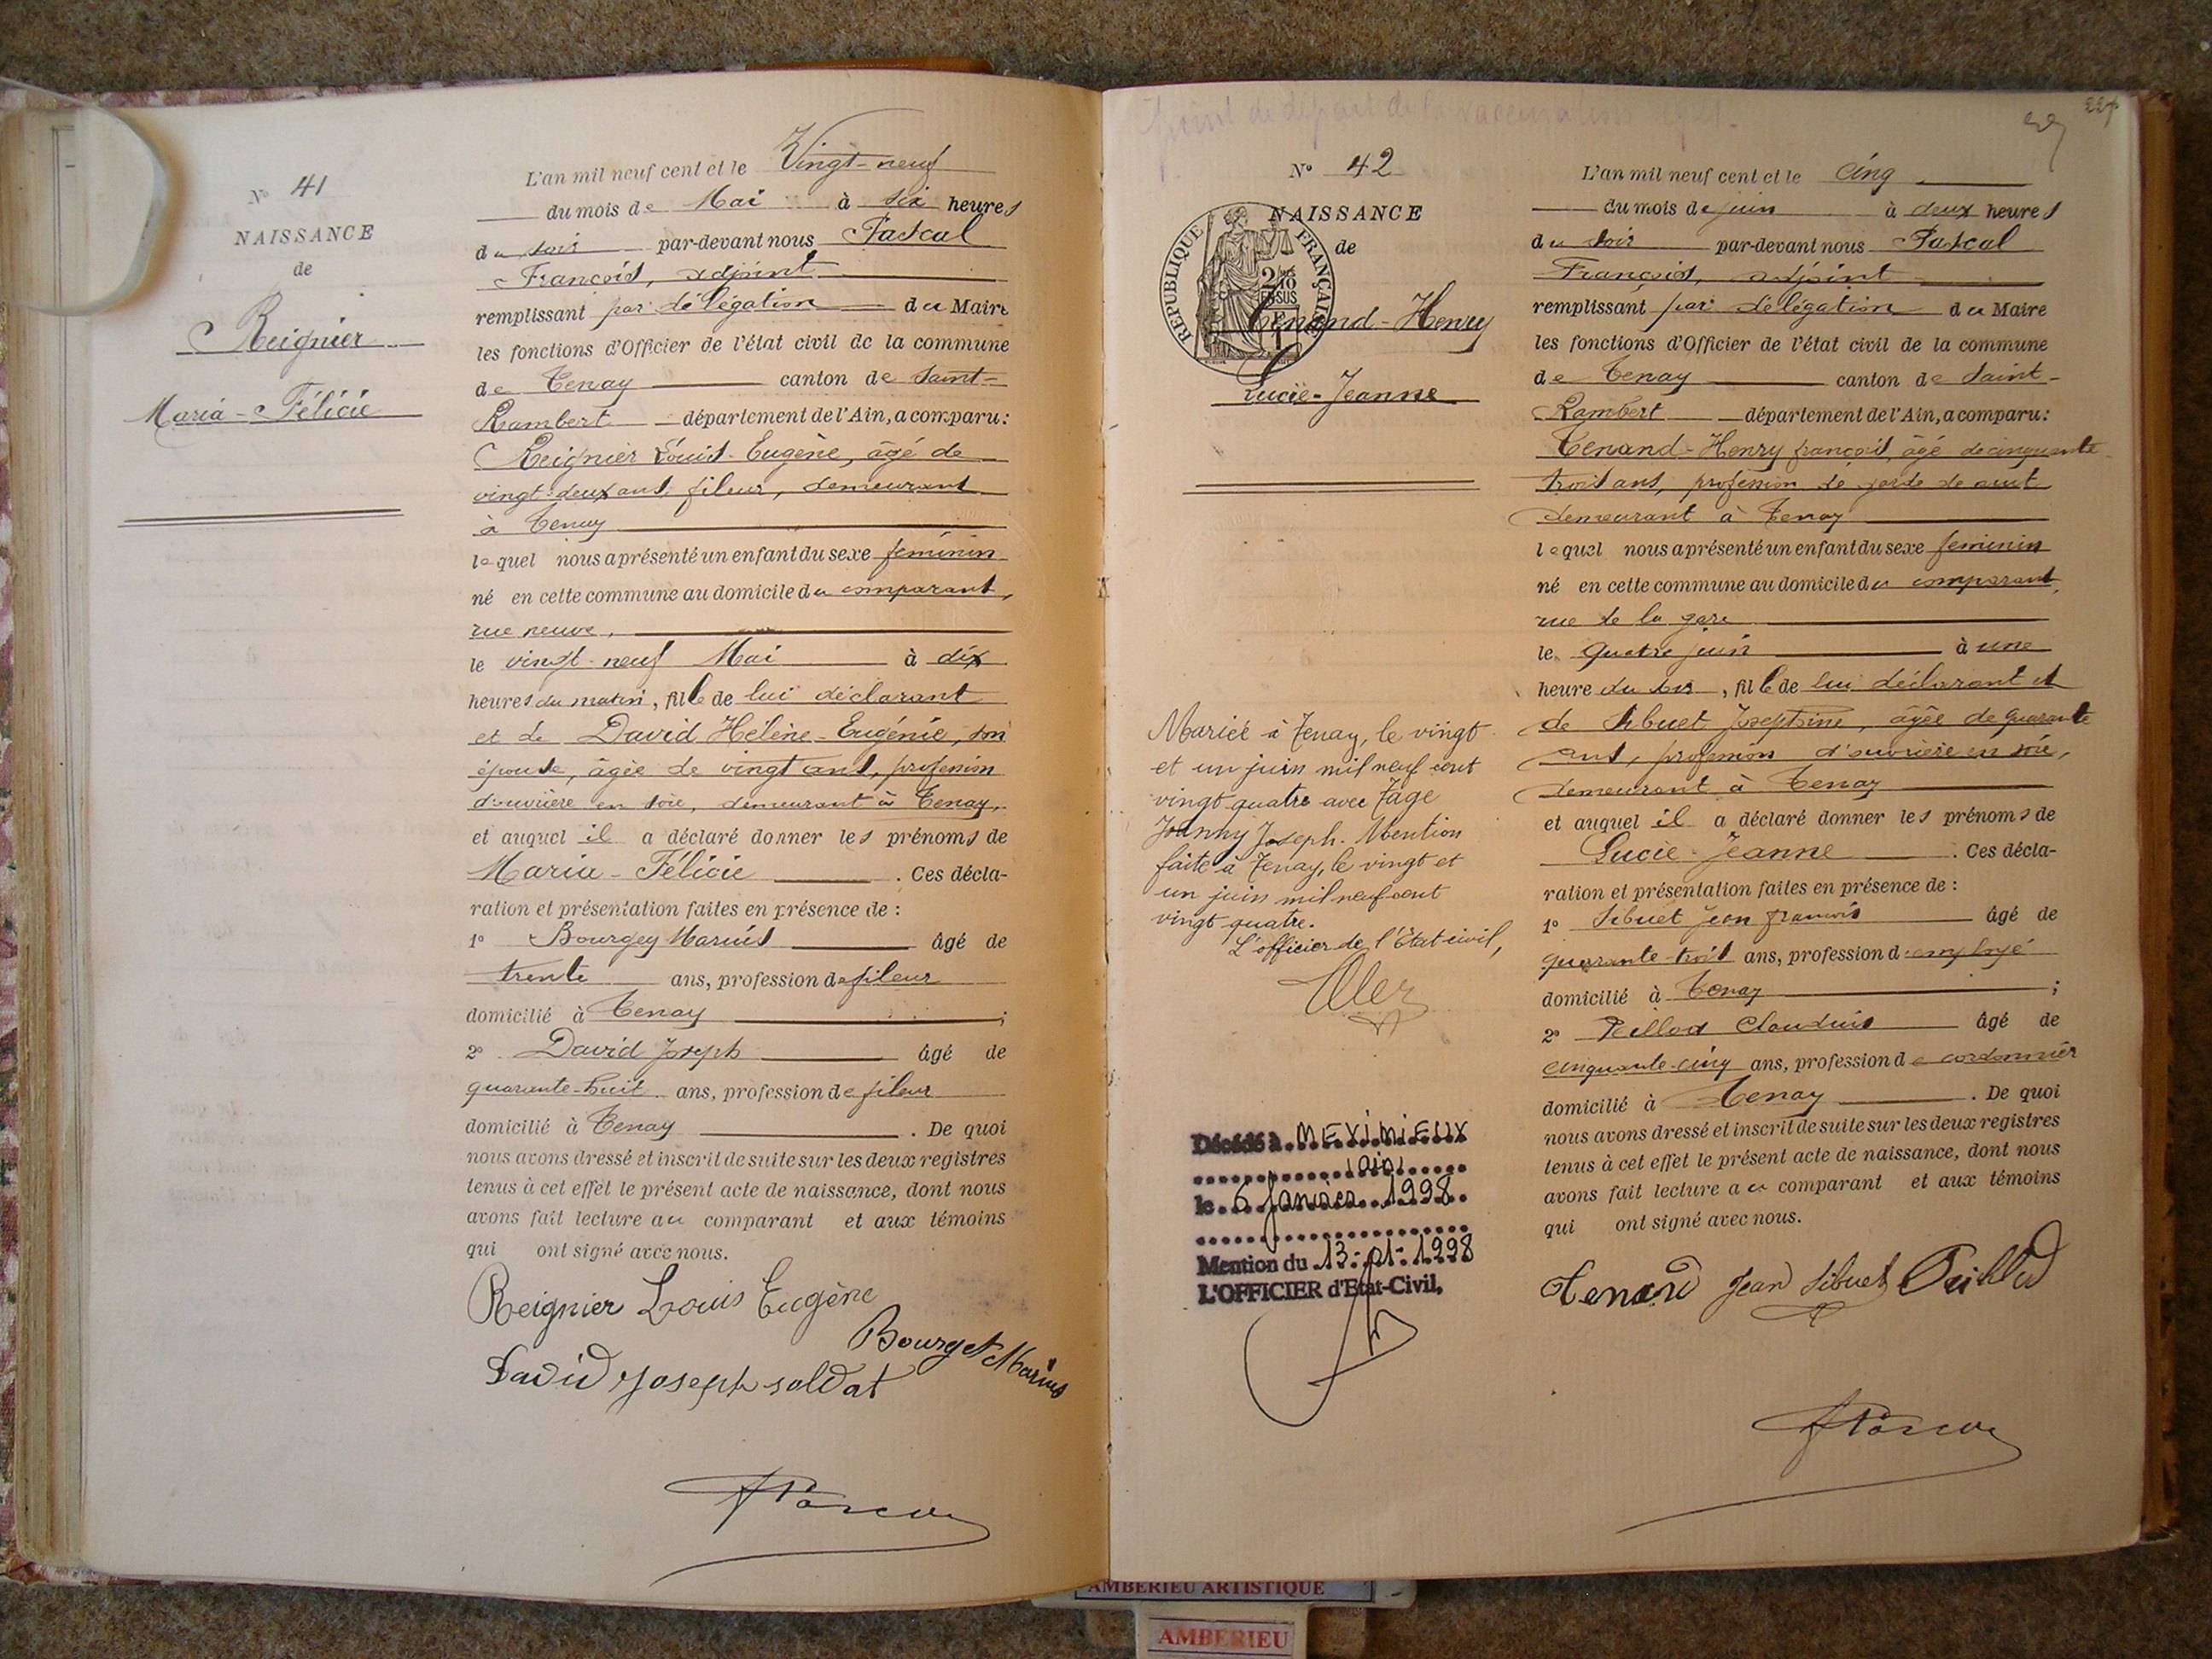 N° 41
NAISSANCE
de
Reignier
Maria-Félicie
L'an mil neuf cent et le Vingt-neuf
du mois de Mai à six heures
du soir par-devant nous Pascal
François, adjoint
remplissant par délégation du Maire
les fonctions d'Officier de l'état civil de la commune
de Tenay canton de Saint-
Rambert département de l'Ain, a comparu:
Reignier Louis-Eugène, âgé de
vingt-deux ans, fileur, demeurant
à Tenay
lequel nous a présenté un enfant du sexe féminin
né en cette commune au domicile du comparant,
rue neuve,
le vingt-neuf Mai à dix
heures du matin, fille de lui déclarant
et de David Hélène-Eugénie, son
épouse, âgée de vingt ans, profession
d'ouvrière en soie, demeurant à Tenay,
et auquel il a déclaré donner les prénoms de
Maria-Félicie . Ces décla-
ration et présentation faites en présence de :
1° Bourgey Marius âgé de
trente ans, profession de fileur
domicilié à Tenay ;
2° David Joseph âgé de
quarante-huit ans, profession de fileur
domicilié à Tenay . De quoi
nous avons dressé et inscrit de suite sur les deux registres
tenus à cet effet le présent acte de naissance, dont nous
avons fait lecture au comparant et aux témoins
qui ont signé avec nous.
Reignier Louis Eugène
Bourget Marius
David Joseph soldat
Point de départ de la vaccination
227
N° 42
NAISSANCE
de
RÉPUBLIQUE FRANÇAISE
2/10 EN SUS
Tenand-Henry
Lucie-Jeanne
L'an mil neuf cent et le cinq
du mois de juin à deux heures
du soir par-devant nous Pascal
François, adjoint
remplissant par délégation du Maire
les fonctions d'Officier de l'état civil de la commune
de Tenay canton de Saint-
Rambert département de l'Ain, a comparu:
Tenand-Henry françois, âgé de cinquante
trois ans, profession de garde de nuit
demeurant à Tenay
lequel nous a présenté un enfant du sexe féminin
né en cette commune au domicile du comparant,
rue de la gare
le quatre juin à une
heure du soir, fille de lui déclarant et
de Sibuet Joséphine, âgée de quarante
ans, profession d'ouvrière en soie,
demeurant à Tenay
et auquel il a déclaré donner les prénoms de
Lucie-Jeanne . Ces décla-
ration et présentation faites en présence de :
1° Sibuet Jean françois âgé de
quarante-trois ans, profession d'employé
domicilié à Tenay ;
2° Peillod Claudius âgé de
cinquante-cinq ans, profession de cordonnier
domicilié à Tenay . De quoi
nous avons dressé et inscrit de suite sur les deux registres
tenus à cet effet le présent acte de naissance, dont nous
avons fait lecture au comparant et aux témoins
qui ont signé avec nous.
Tenand Jean Sibuet Peillod
Mariée à Tenay, le vingt
et un juin mil neuf cent
vingt quatre avec Tage
Joanny Joseph. Mention
faite à Tenay, le vingt et
un juin mil neuf cent
vingt quatre.
L'officier de l'Etat civil,
Décédé à MEXIMIEUX
(ain)
le 6 Janvier 1998
Mention du 13-01-1998
L'OFFICIER d'Etat-Civil,
AMBERIEU ARTISTIQUE
AMBERIEU